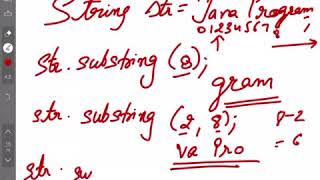 String str = "Java Program";
012345678
str. substring (8);
gram
str. substring (2, 8); 8-2
va Pro = 6
str. su